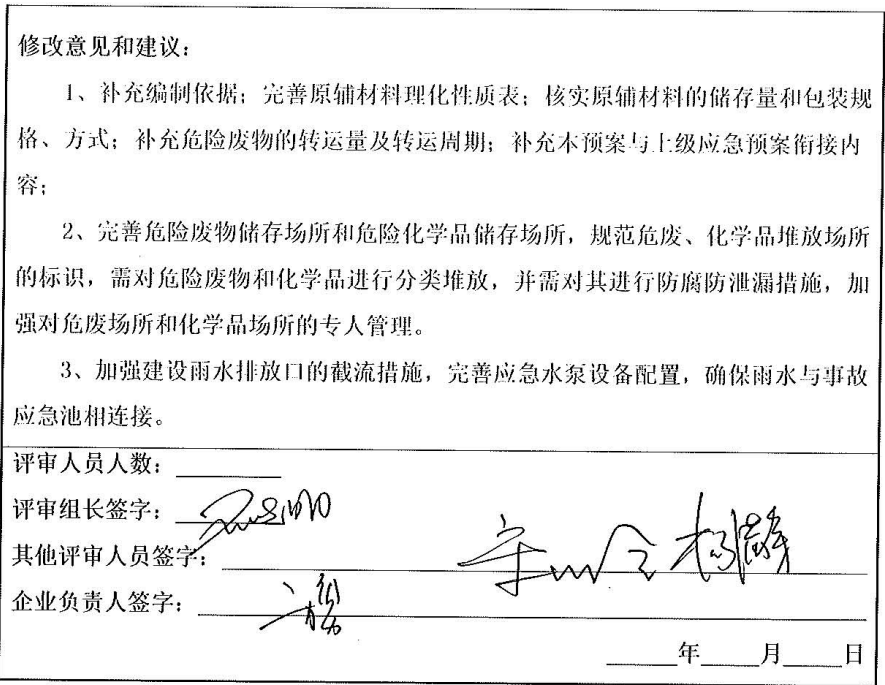 修改意见和建议：
1、补充编制依据；完善原辅材料理化性质表；核实原辅材料的储存量和包装规
格、方式；补充危险废物的转运量及转运周期；补充本预案与上级应急预案衔接内
容；
2、完善危险废物储存场所和危险化学品储存场所，规范危废、化学品堆放场所
的标识，需对危险废物和化学品进行分类堆放，并需对其进行防腐防泄漏措施，加
强对危废场所和化学品场所的专人管理。
3、加强建设雨水排放口的截流措施，完善应急水泵设备配置，确保雨水与事故
应急池相连接。
评审人员人数：
评审组长签字：
其他评审人员签字：
企业负责人签字：
年 月 日